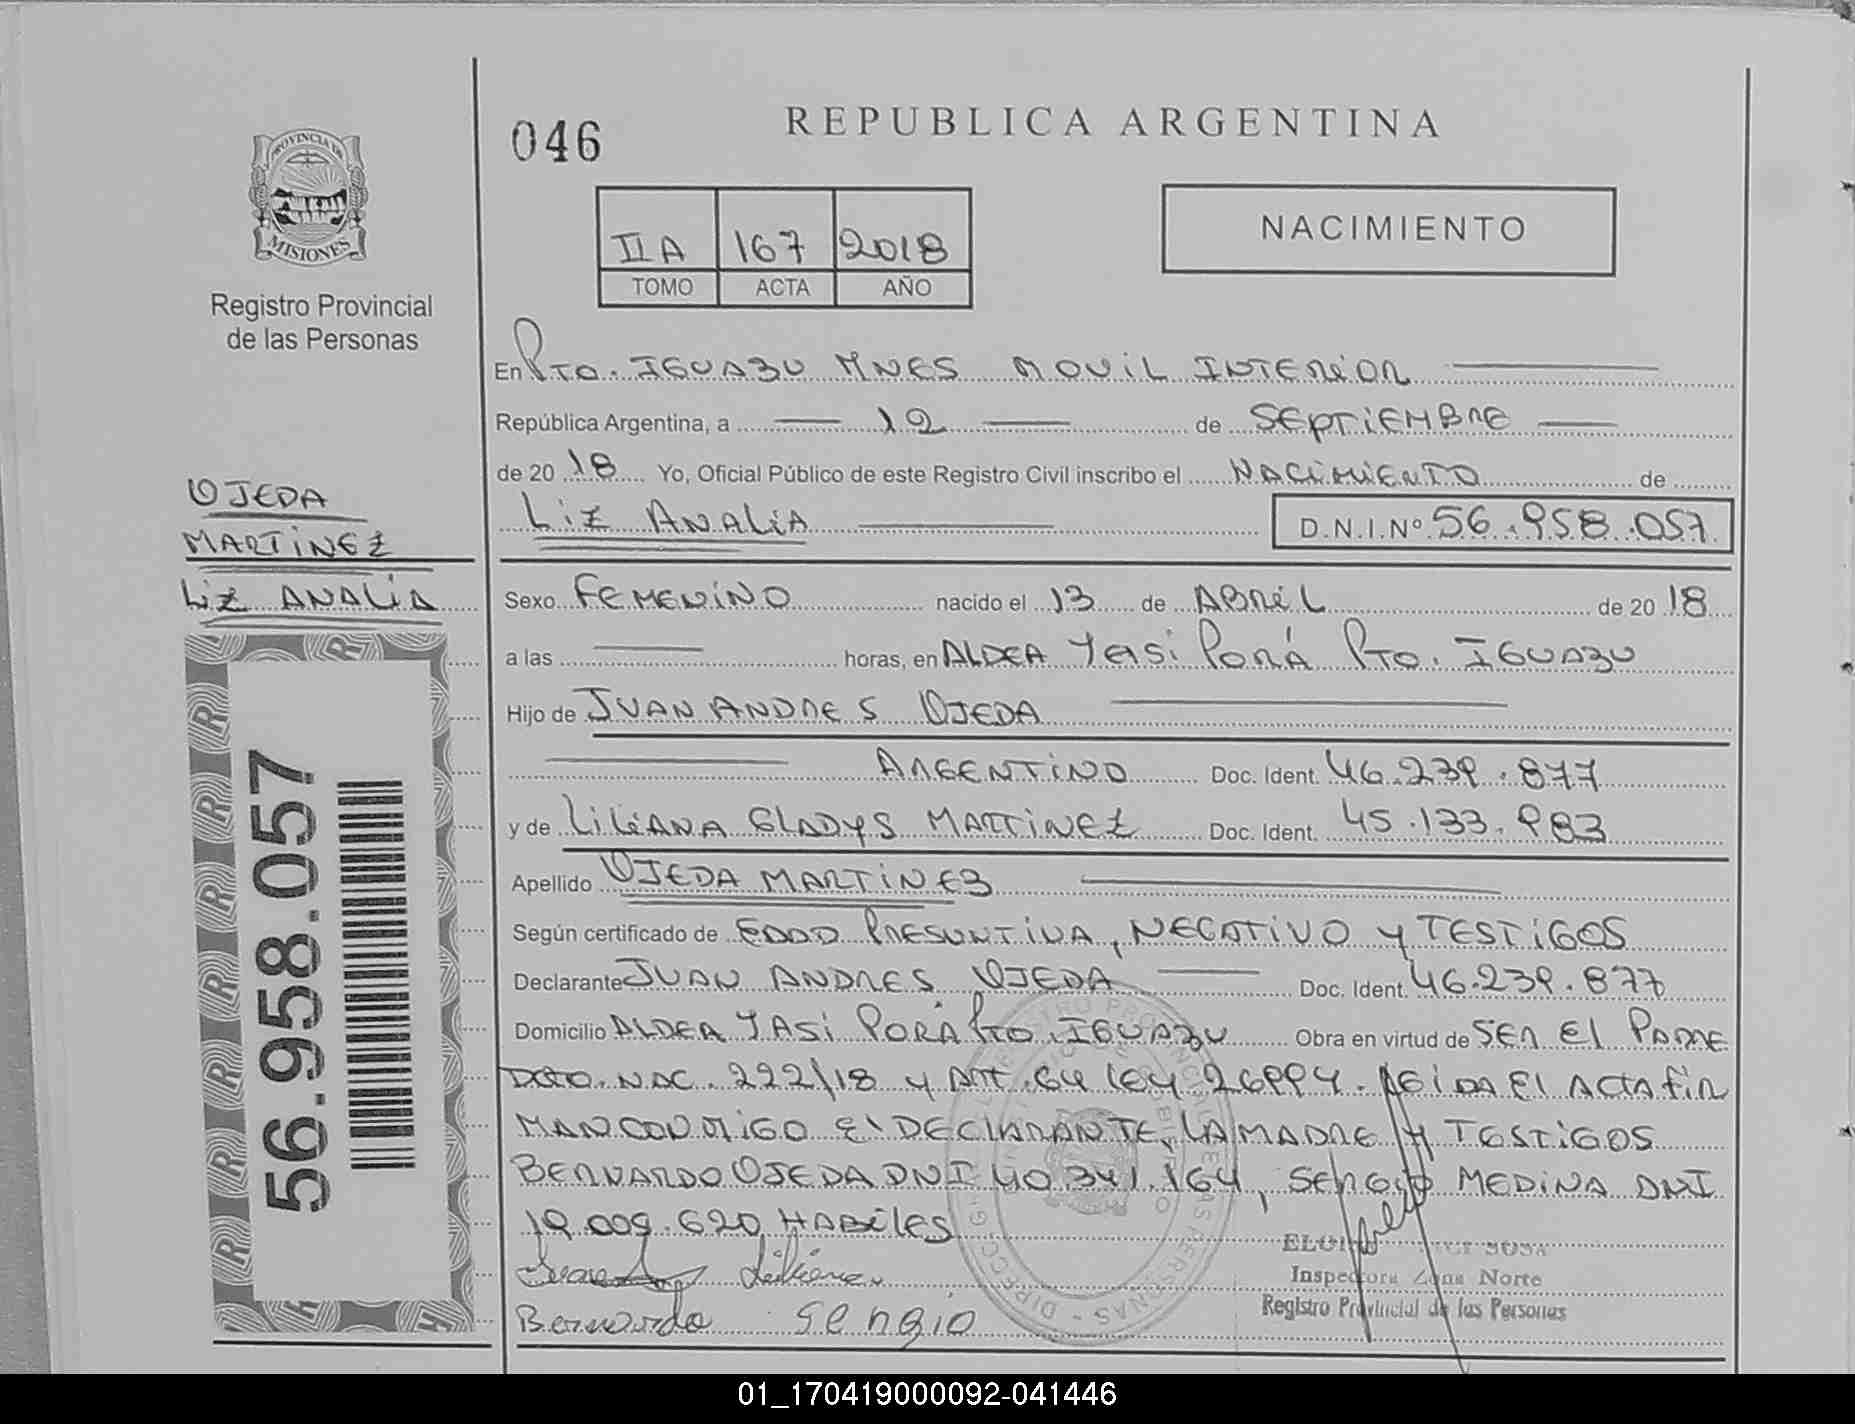 046
REPUBLICA ARGENTINA
PROVINCIA DE
MISIONES
Registro Provincial
de las Personas
IIA 167 2018
TOMO ACTA AÑO
NACIMIENTO
En Pto. IGUAZU MNES MOVIL INTERIOR
República Argentina, a 12 de SEPTIEMBRE
de 20 18 Yo, Oficial Público de este Registro Civil inscribo el NACIMIENTO de
LIZ ANALIA D.N.I.Nº 56.958.057
OJEDA
MARTINEZ
LIZ ANALIA
56.958.057
Sexo FEMENINO nacido el 13 de ABRIL de 20 18
a las horas, en ALDEA YASI PORÁ PTO. IGUAZU
Hijo de JUAN ANDRES OJEDA
ARGENTINO Doc. Ident. 46.239.877
y de LILIANA GLADYS MARTINEZ Doc. Ident. 45.133.983
Apellido OJEDA MARTINEZ
Según certificado de EDAD PRESUNTIVA, NEGATIVO Y TESTIGOS
Declarante JUAN ANDRES OJEDA Doc. Ident. 46.239.877
Domicilio ALDEA YASI PORÁ PTO. IGUAZU Obra en virtud de SER El PADRE
DCTO. NAC. 222/18 y ART. 64 LEY 26994. LEIDA El ACTA fIR
MAN CONMIGO El DECLARANTE, LA MADRE Y TESTIGOS
BERNARDO OJEDA DNI 40.341.164, SERGIO MEDINA DNI
19.009.620 HABILES
Juan Liliana
Bernardo Sergio
SOSA
Inspectora Zona Norte
Registro Provincial de las Personas
01_170419000092-041446